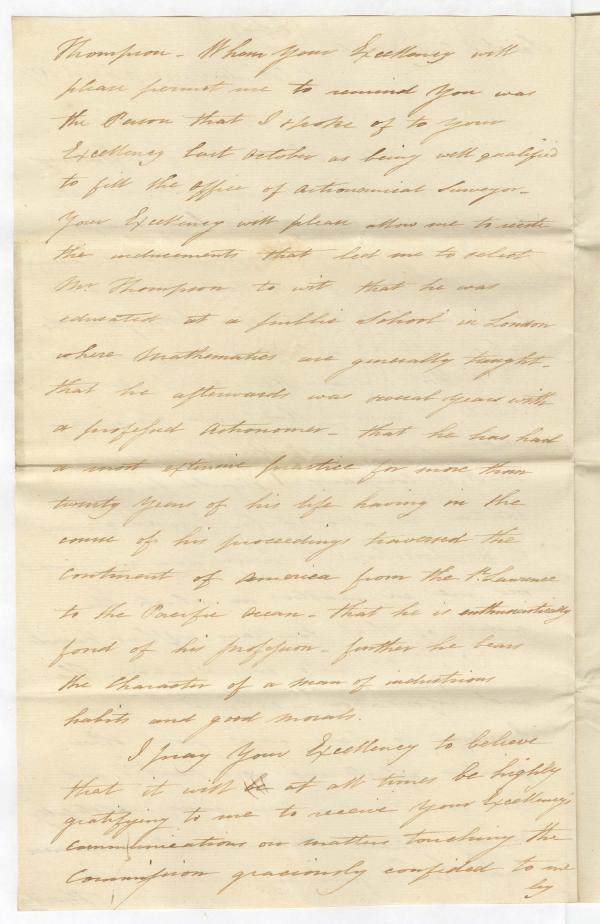 Thompson - Whom Your Excellency will
please permit me to remind You was
the Person that I spoke of to Your
Excellency last October as being well qualified
to fill the office of Astronomical Surveyor -
Your Excellency will please allow me to recite
the inducements that led me to select
Mr Thompson to wit that he was
educated at a public School in London
where Mathematics are generally taught -
that he afterwards was several Years with
a professed Astronomer - that he has had
a most extensive practice for more than
twenty Years of his life having in the
course of his proceedings traversed the
Continent of America from the St. Lawrence
to the Pacific Ocean - that he is enthusiastically
fond of his profession - further he bears
the Character of a man of industrious
habits and good morals.
I pray Your Excellency to believe
that it will be at all times be highly
gratifying to me to receive Your Excellency's
communications on matters touching the
Commission graciously confided to me
by